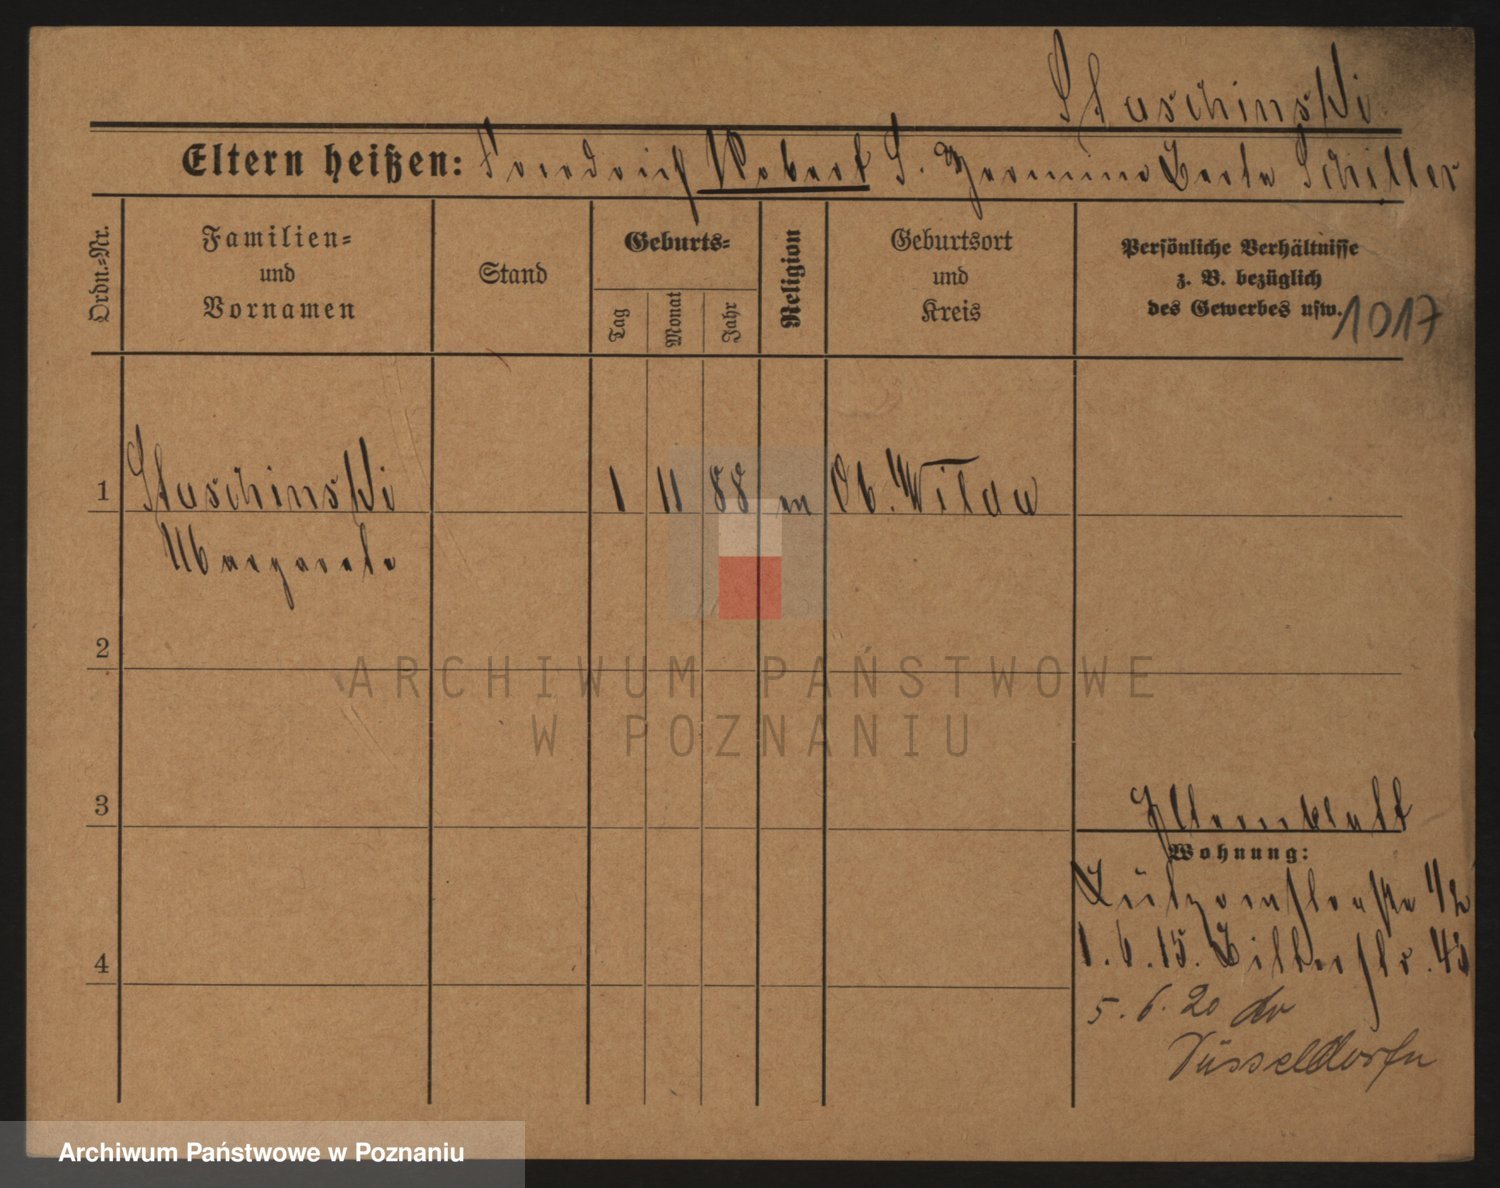 Staschinski
Eltern heißen: Friedrich Robert S. Hermine Berta Schiller
Ordn.=Nr.
Familien=
und
Vornamen
Stand
Geburts=
Tag
Monat
Jahr
Religion
Geburtsort
und
Kreis
Persönliche Verhältnisse
z. B. bezüglich
des Gewerbes usw.
1017
1 Staschinski 1 11 88 Ob. Wilda
Margarete
2
3
4
Elternblatt
Wohnung:
Lützowstraße
1.6.15. Bitterstr. 43
5.6.20 do
Düsseldorfu
ARCHIWUM PAŃSTWOWE
W POZNANIU
Archiwum Państwowe w Poznaniu